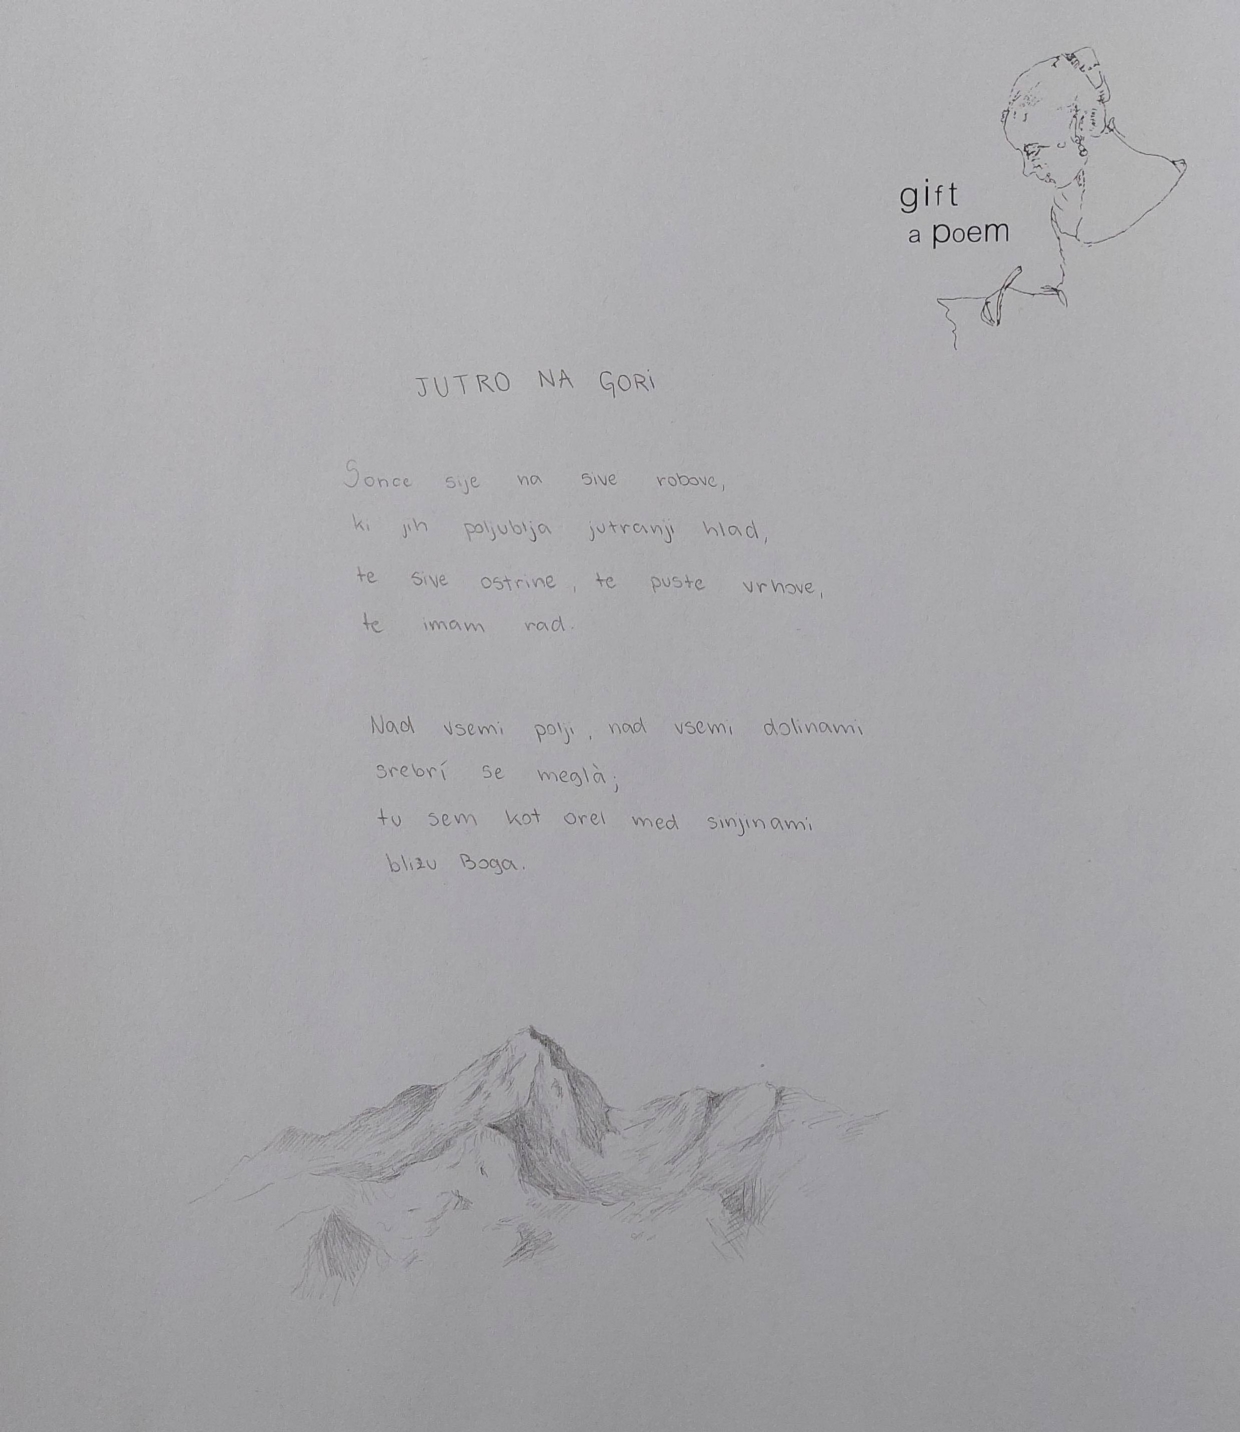 gift
a poem
JUTRO NA GORI
Sonce sije na sive robove,
ki jih poljublja jutranji hlad,
te sive ostrine, te puste vrhove,
te imam rad.
Nad vsemi polji, nad vsemi dolinami
srebrí se meglà;
tu sem kot orel med sinjinami
blizu Boga.